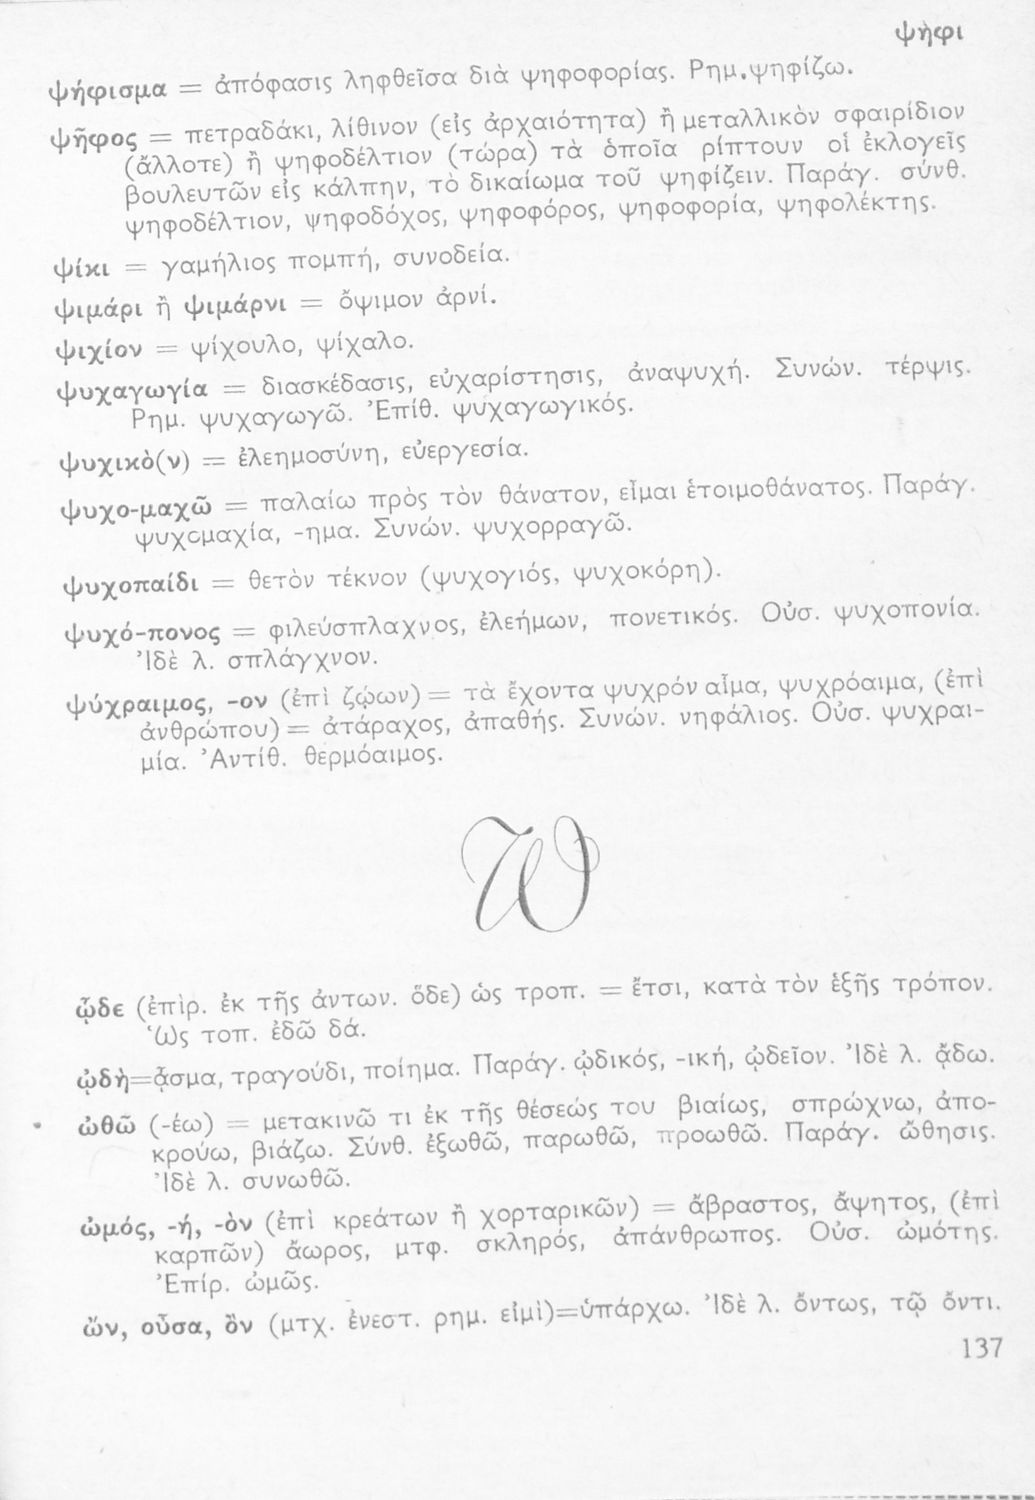 ψήφι
ψήφισμα = ἀπόφασις ληφθεῖσα διὰ ψηφοφορίας. Ρημ. ψηφίζω.
ψῆφος = πετραδάκι, λίθινον (εἰς ἀρχαιότητα) ἢ μεταλλικὸν σφαιρίδιον
(ἄλλοτε) ἢ ψηφοδέλτιον (τώρα) τὰ ὁποῖα ρίπτουν οἱ ἐκλογεῖς
βουλευτῶν εἰς κάλπην, τὸ δικαίωμα τοῦ ψηφίζειν. Παράγ. σύνθ.
ψηφοδέλτιον, ψηφοδόχος, ψηφοφόρος, ψηφοφορία, ψηφολέκτης.
ψίκι = γαμήλιος πομπή, συνοδεία.
ψιμάρι ἢ ψιμάρνι = ὄψιμον ἀρνί.
ψιχίον = ψίχουλο, ψίχαλο.
ψυχαγωγία = διασκέδασις, εὐχαρίστησις, ἀναψυχή. Συνών. τέρψις.
Ρημ. ψυχαγωγῶ. Ἐπίθ. ψυχαγωγικός.
ψυχικὸ(ν) = ἐλεημοσύνη, εὐεργεσία.
ψυχο-μαχῶ = παλαίω πρὸς τὸν θάνατον, εἶμαι ἑτοιμοθάνατος. Παράγ.
ψυχομαχία, -ημα. Συνών. ψυχορραγῶ.
ψυχοπαίδι = θετὸν τέκνον (ψυχογιός, ψυχοκόρη).
ψυχό-πονος = φιλεύσπλαχνος, ἐλεήμων, πονετικός. Οὐσ. ψυχοπονία.
Ἰδὲ λ. σπλάγχνον.
ψύχραιμος, -ον (ἐπὶ ζῴων) = τὰ ἔχοντα ψυχρόν αἷμα, ψυχρόαιμα, (ἐπὶ
ἀνθρώπου) = ἀτάραχος, ἀπαθής. Συνών. νηφάλιος. Οὐσ. ψυχραι-
μία. Ἀντίθ. θερμόαιμος.
W
ᾧδε (ἐπὶρ. ἐκ τῆς ἀντων. ὅδε) ὡς τροπ. = ἔτσι, κατὰ τὸν ἑξῆς τρόπον.
Ὡς τοπ. ἐδῶ δά.
ᾠδὴ=ᾆσμα, τραγούδι, ποίημα. Παράγ. ᾠδικός, -ική, ᾠδεῖον. Ἰδὲ λ. ᾄδω.
ὠθῶ (-έω) = μετακινῶ τι ἐκ τῆς θέσεώς του βιαίως, σπρώχνω, ἀπο-
κρούω, βιάζω. Σύνθ. ἐξωθῶ, παρωθῶ, προωθῶ. Παράγ. ὤθησις.
Ἰδὲ λ. συνωθῶ.
ὠμός, -ή, -ὸν (ἐπὶ κρεάτων ἢ χορταρικῶν) = ἄβραστος, ἄψητος, (ἐπὶ
καρπῶν) ἄωρος, μτφ. σκληρός, ἀπάνθρωπος. Οὐσ. ὠμότης.
Ἐπίρ. ὠμῶς.
ὤν, οὖσα, ὂν (μτχ. ἐνεστ. ρημ. εἰμὶ)=ὑπάρχω. Ἰδὲ λ. ὄντως, τῷ ὄντι.
137